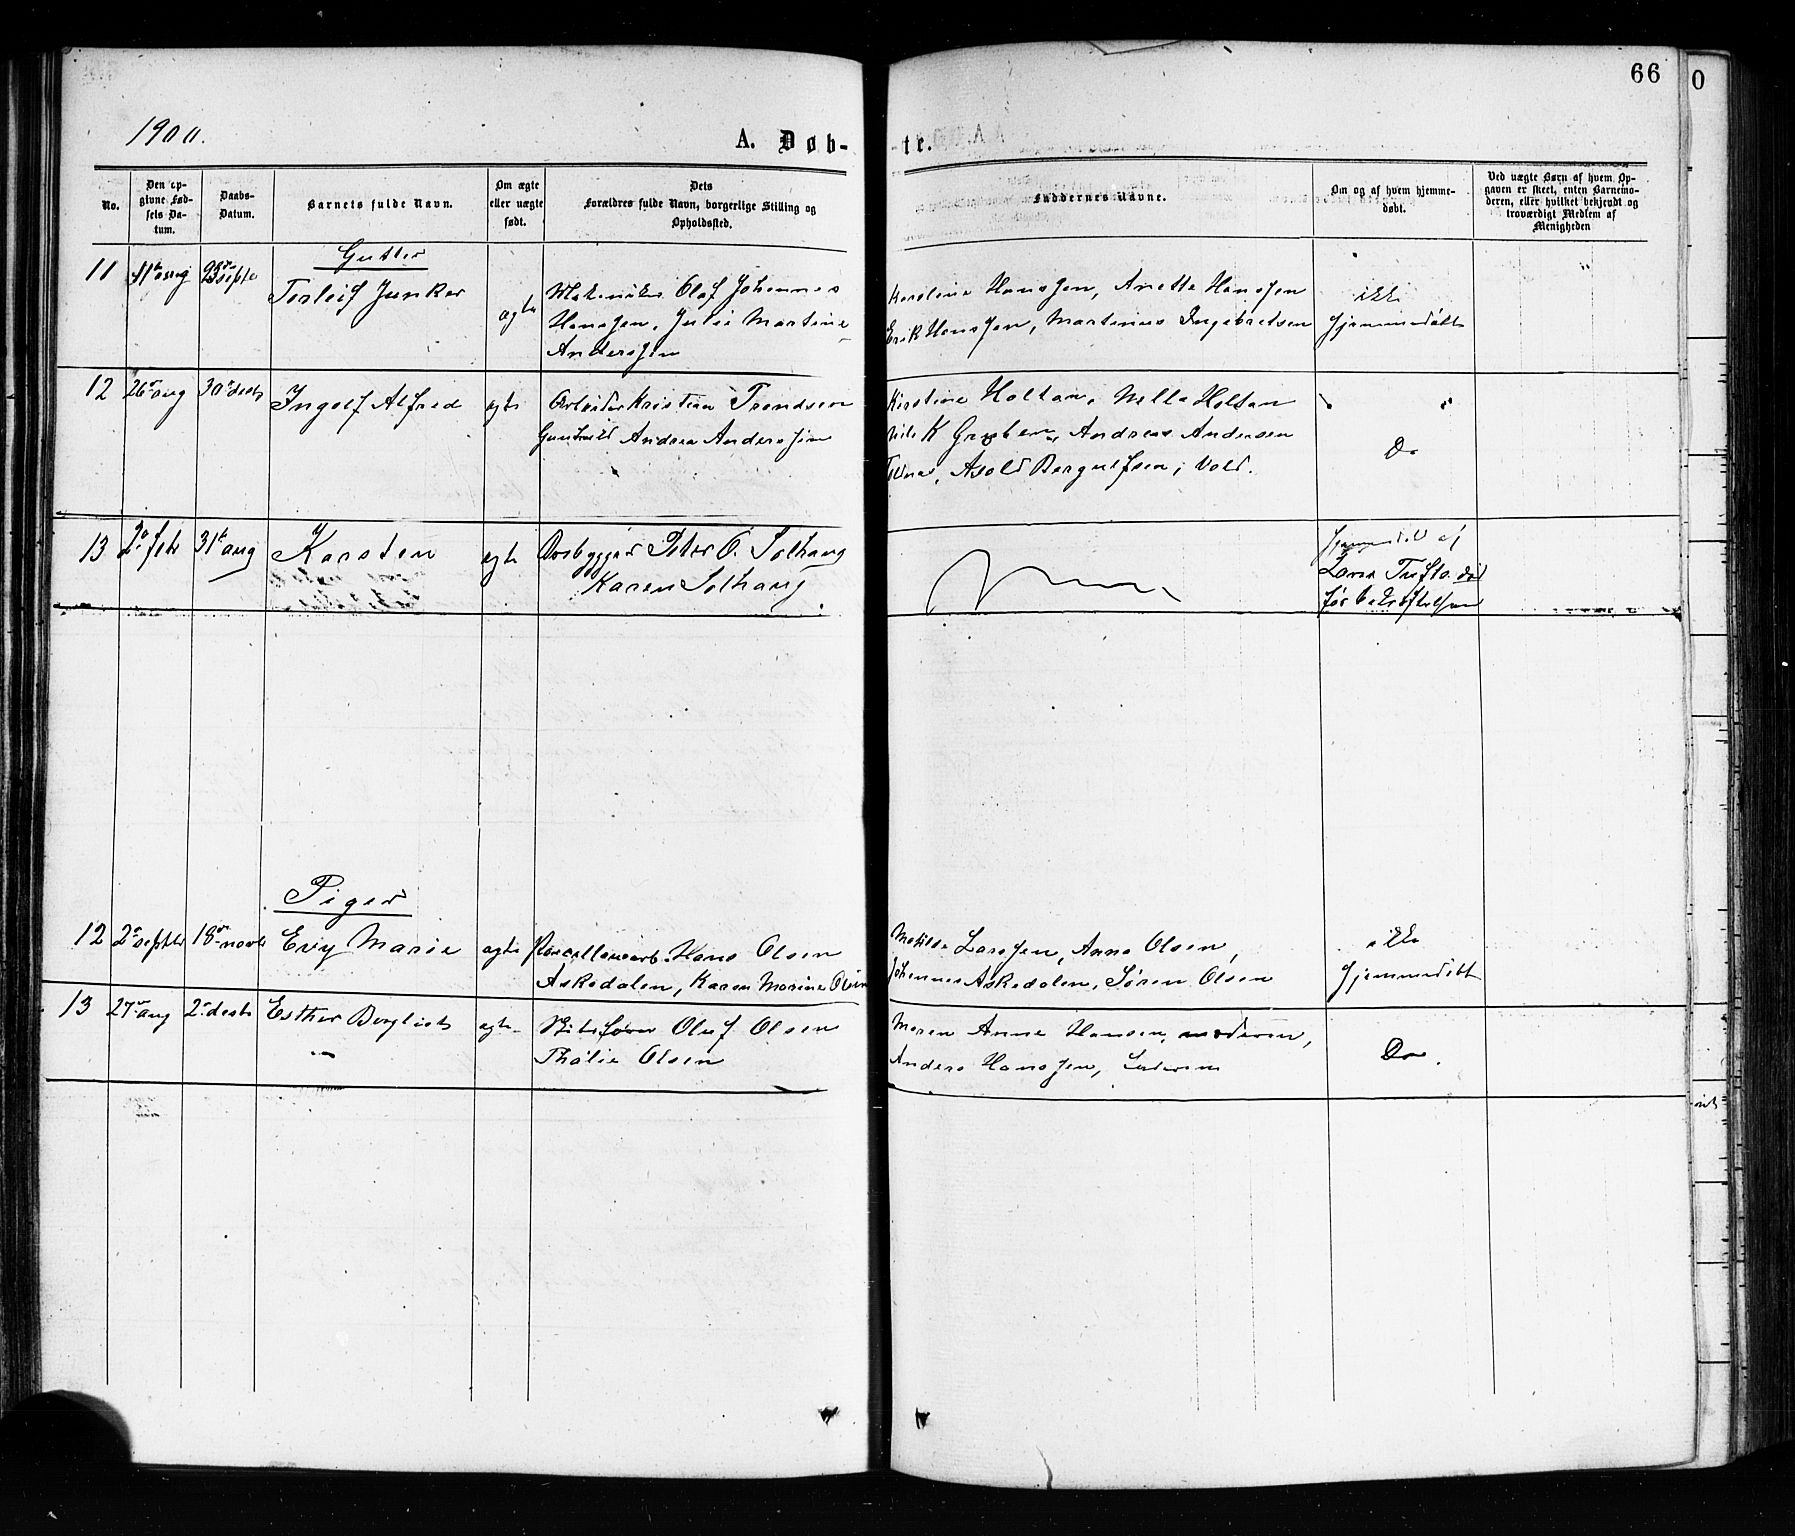 66
0
1900.
A. Døb-
-te.
No.
Den op-
givne Fød-
sels Da-
tum.
Daabs-
Datum.
Barnets fulde Navn.
Om ægte
eller uægte
født.
Dets
Forældres fulde Navn, borgerlige Stilling og
Opholdssted.
Faddernes Navne.
Om og af hvem hjemme-
døbt.
Ved uægte Børn af hvem Op-
gaven er skeet, enten Barnemo-
deren, eller hvilket bekjendt og
troværdigt Medlem af
Menigheden
Gutter
11 11te aug 23de septe
Torleif Junker
ægte
Olaf Johannes
Hanssen, Julie Martine
Anderssen
Karoline Hanssen, Anette Hanssen
Erik Hanssen, Martinus Ingebretsen
ikke
hjemmedøbt
12 26 aug 30 dec
Ingolf Alfred
ægte
Arbeider Kristian Trondsen
Gunhild Andrea Anderssen
Kirstine Holtan, Nella Holtan
Nils K Andreas Andersen
Asold Bergulfsen, Vold.
Do
13 2 febr 31te aug
Karsten
ægte
Peter O. Solhaug
Karen Solhaug
hjemmedøbt af
Piger
12 2 septbr 18de novbr
Evy Marie
ægte
Porcellænsarb. Hans Olsen
Askedalen, Karen Marine Olsen
Matilde Larssen, Anna Olsen,
Johannes Askedalen, Søren Olsen
ikke
hjemmedøbt
13 27 aug 2 decbr
Esther Bergliot
ægte
Oluf Olsen
Thalie Olsen
Maren Anne Hansen, moderen,
Anders Hanssen, faderen
Do